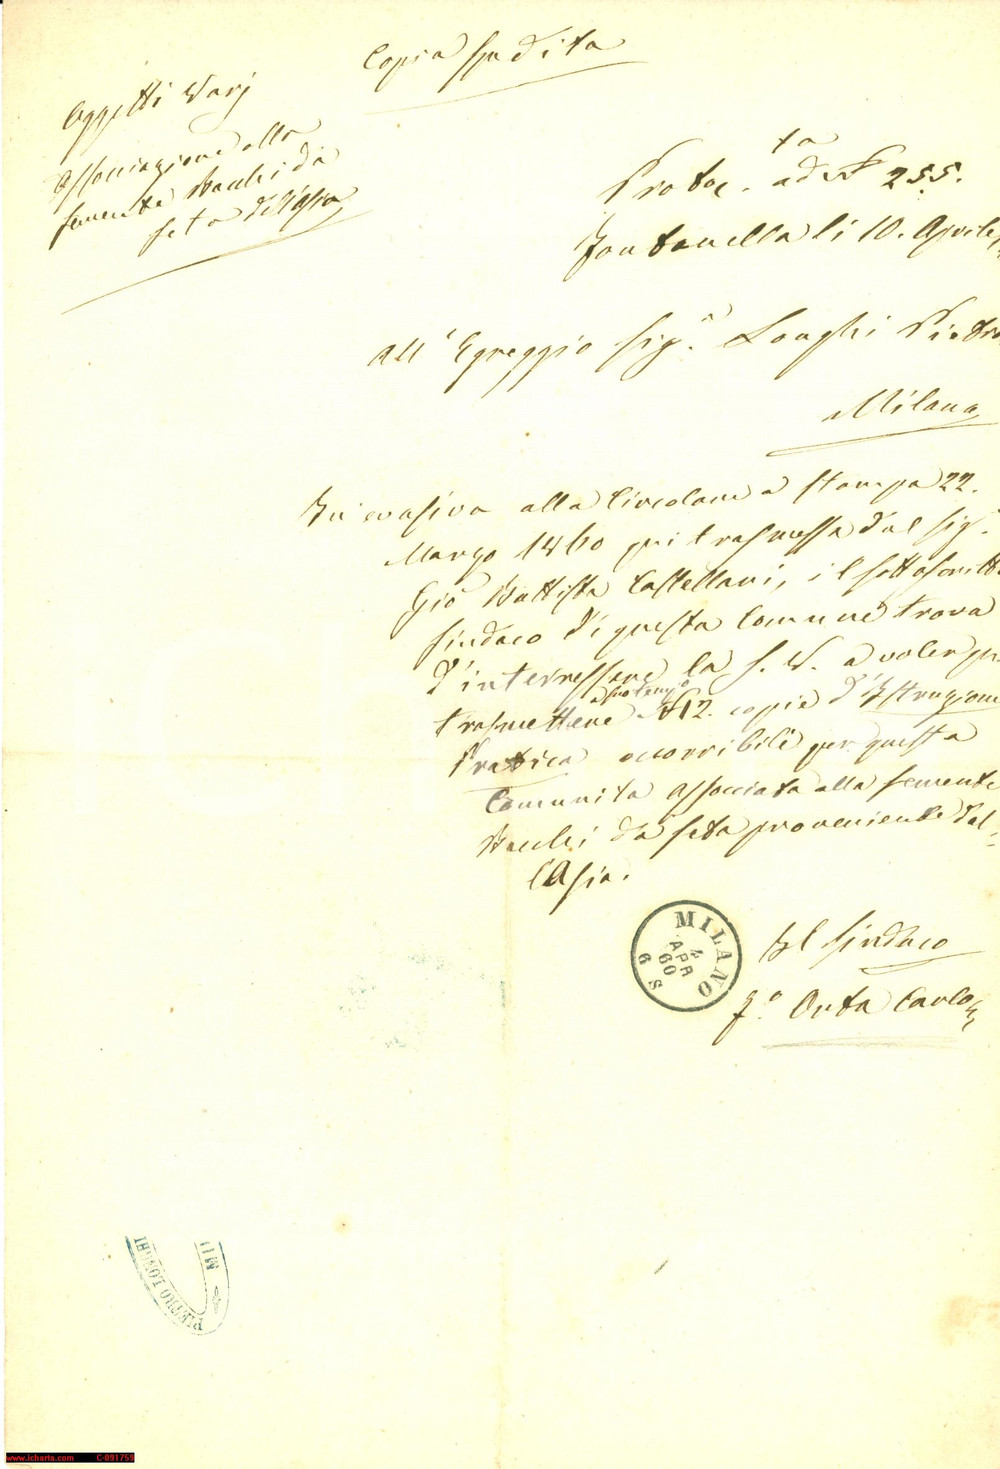 Copia spedita
Oggetti Varj
Associazione alla
semente Bachi da
seta dell'Asia
Protoc. ta ad N° 255.
Fontanella li 10. Aprile
All' Egreggio Sig.r Longhi Pietro
Milano
In evasiva alla Circolare a stampa 22.
Marzo 1860 qui trasmessa dal Sig.r
Gio Battista Castellani, il sottoscritto
Sindaco di questa Comune trova
d'interressare la S. V. a voler
trasmettere N 12. copie d'Istruzione
Pratica occorribili per questa
Comunita associata alla semente
Bachi da seta proveniente dal-
l'Asia.
Il Sindaco
F.o Orta Carlo
MILANO
4
APR
60
6 S
PIETRO LONGHI
MIL
www.icharta.com C-091759